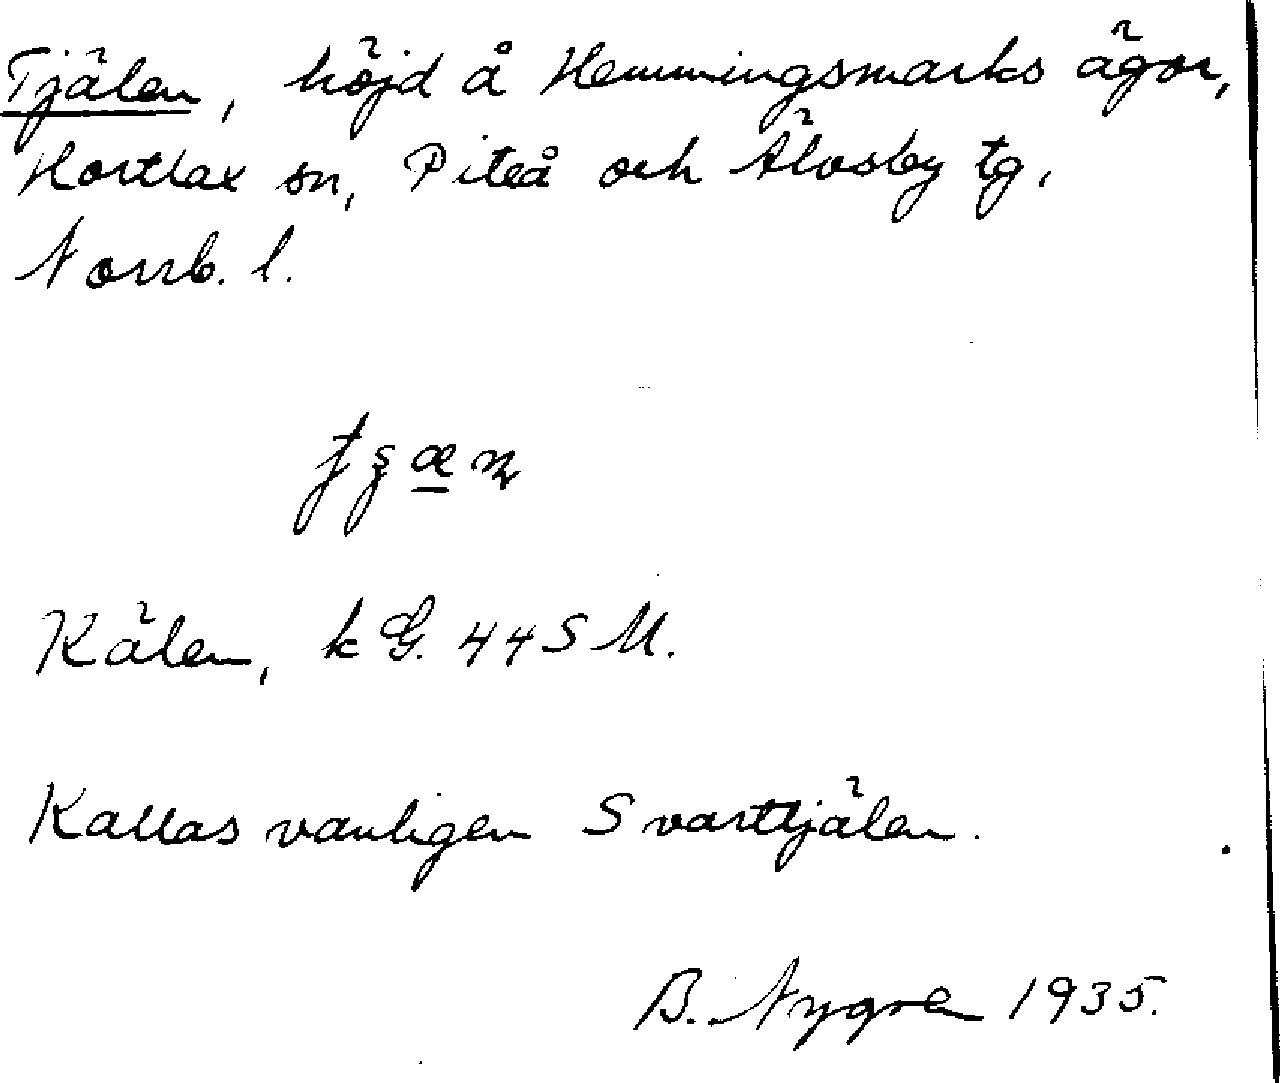 Tjälen, höjd å Hemmingsmarks ägor,
Hortlax sn, Piteå och Älvsby tg,
Norrb. l.
Kälen, k G. 44 S M.
Kallas vanligen Svarttjälen.
B. Nygren 1935.